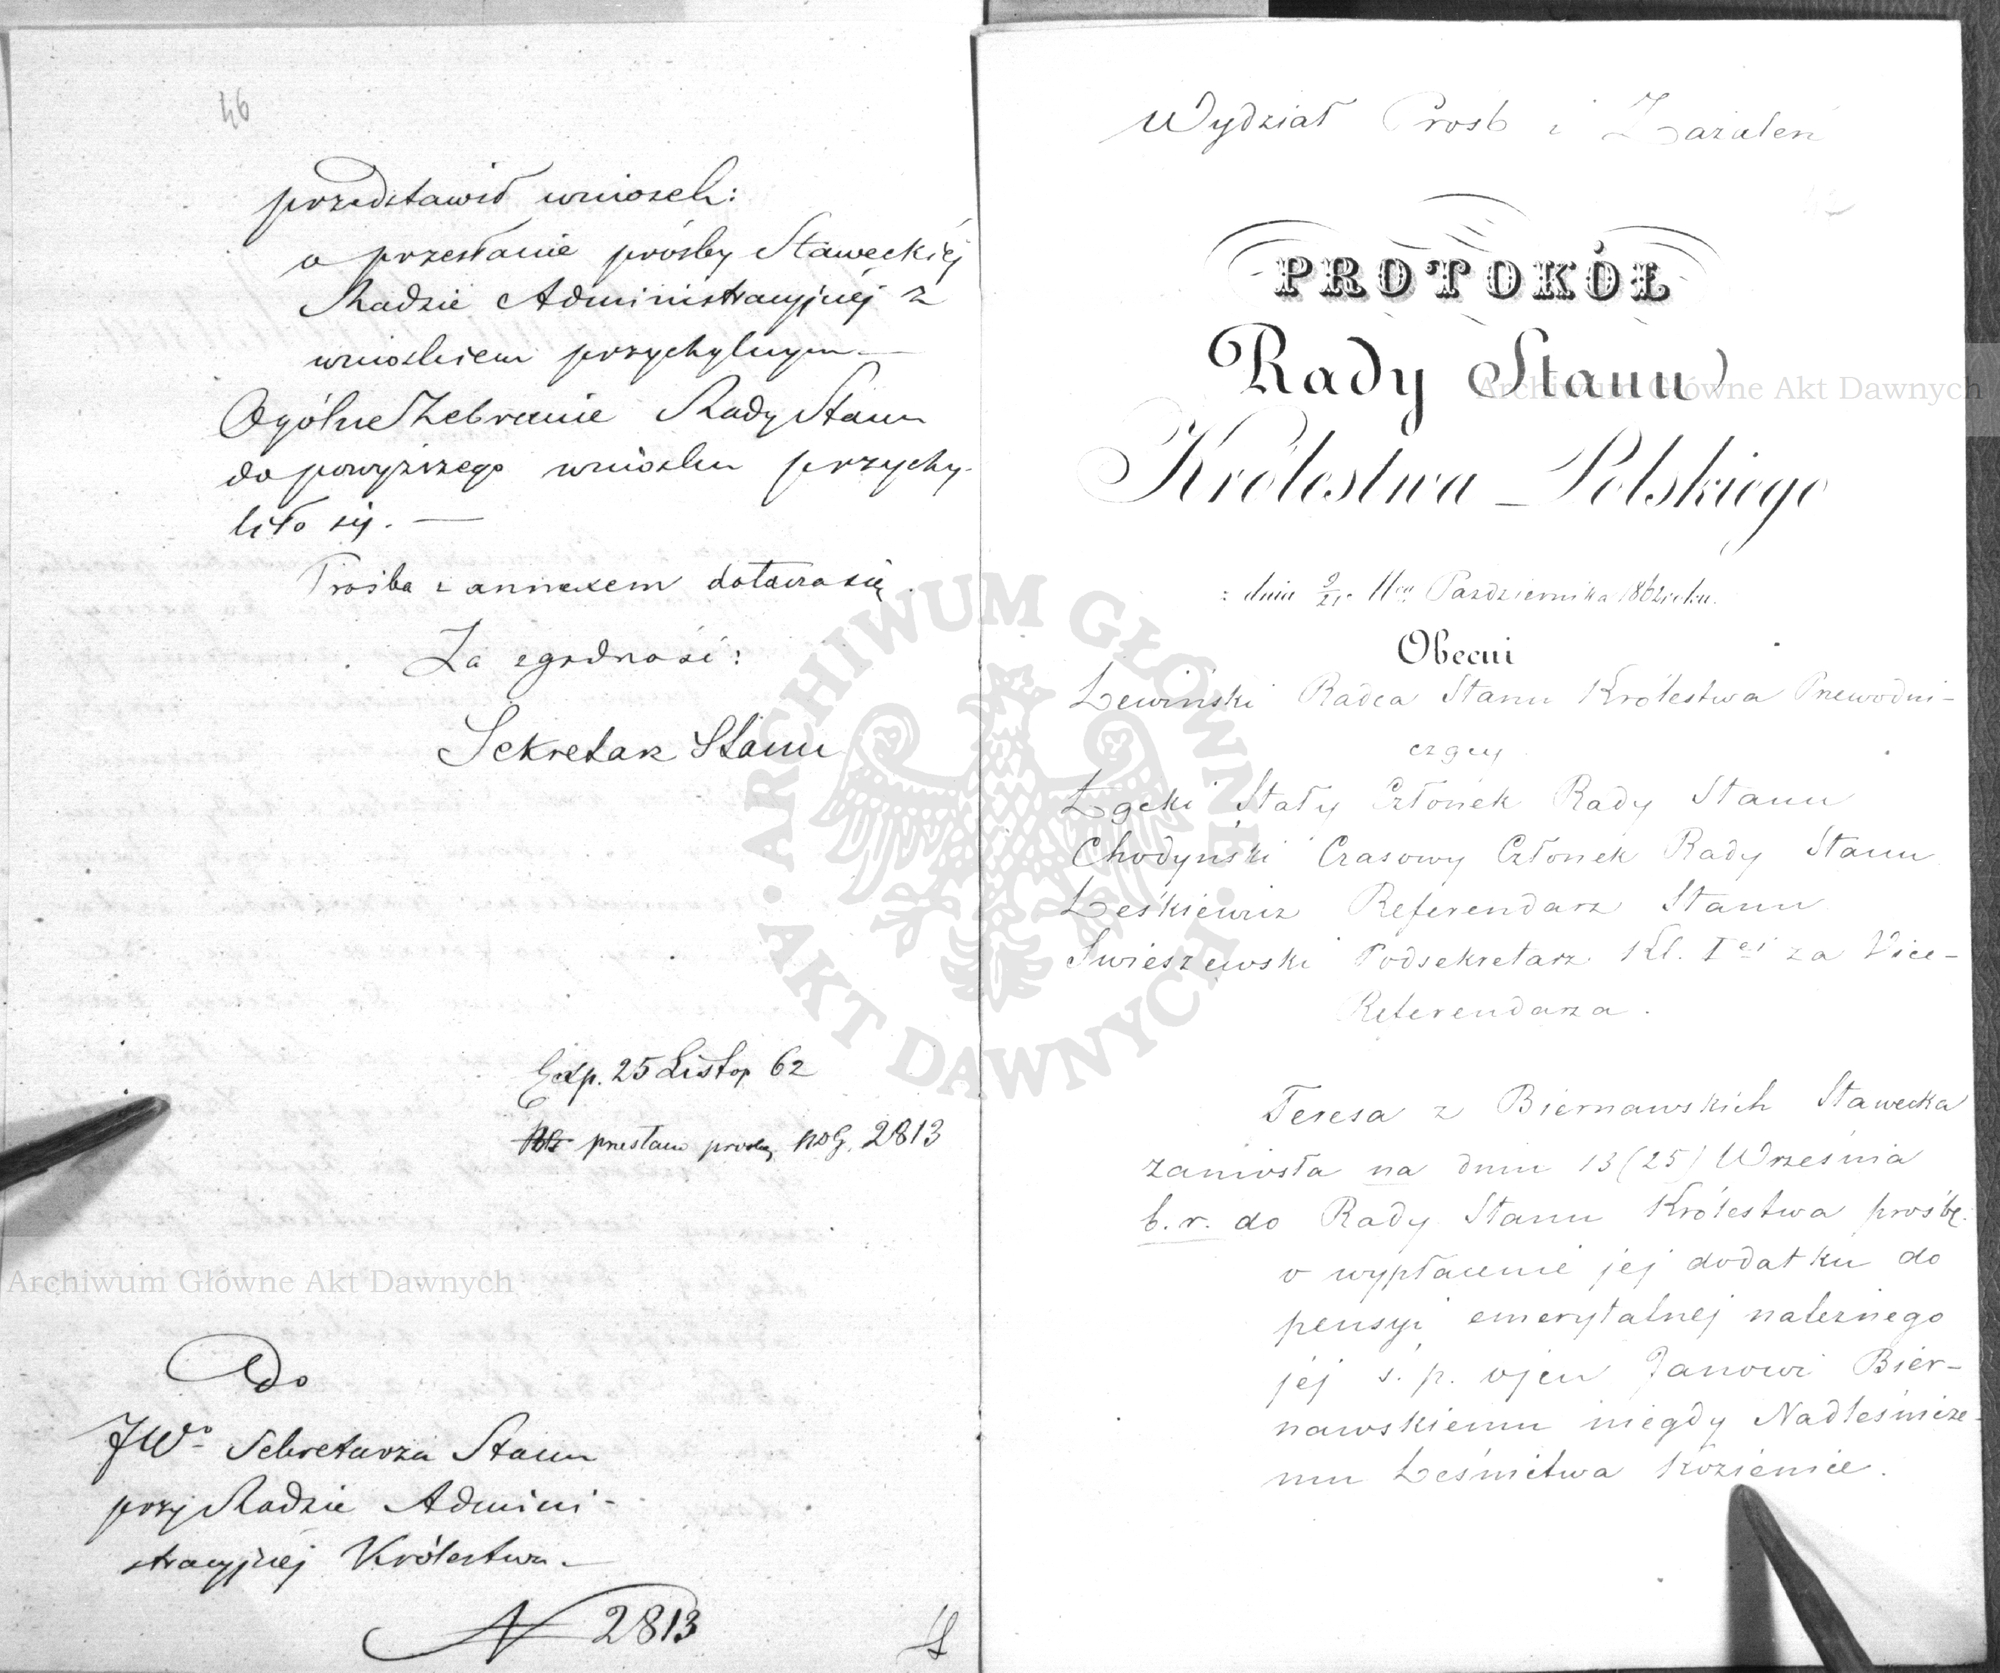 46
przedstawił wniosek:
o przesłanie prośby Staweckiéj
Radzie Administracyjnéj z
wnioskiem przychylnym. —
Ogólne Zebranie Rady Stanu
do powyższego wniosku przychy-
liło się. —
Prośba z annexem dołącza się.
Za zgodność:
Sekretarz Stanu
Exp. 25 Listop 62
przesłano prośbę 2813
Do
JWo Sekretarza Stanu
przy Radzie Admini-
stracyjnéj Królestwa. —
N 2813
Wydział Prośb i Zażaleń
PROTOKÓŁ
Rady Stanu
Królestwa Polskiego
z dnia 9/21 Października 1862 roku.
Obecni
Lewiński Radca Stanu Królestwa Przewodni-
czący
Łącki Stały Członek Rady Stanu
Chodyński Czasowy Członek Rady Stanu
Leśkiewicz Referendarz Stanu
Swieszewski Podsekretarz Kl. Iej za Vice-
Referendarza.
Teresa z Biernawskich Stawecka
zaniosła na dniu 13 (25) Września
b. r. do Rady Stanu Królestwa prośbę:
o wypłacenie jej dodatku do
pensyi emerytalnej należnego
jej ś. p. ojcu Janowi Bier-
nawskiemu niegdy Nadleśnicze-
mu Leśnictwa Kozienice.
Archiwum Główne Akt Dawnych
Archiwum Główne Akt Dawnych
ARCHIWUM GŁÓWNE AKT DAWNYCH